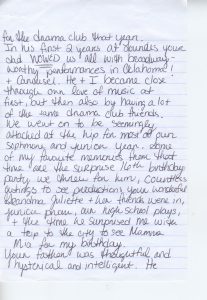 for the drama club that year.
In his first 2 years at Saunders your
dad WOWED us all with broadway-
worthy performances in Oklahoma!
+ Carousel. He + I became close
through our love of music at
first, but then also by having a lot
of the same drama club friends.
We went on to be seemingly
attached at the hip for most of our
Sophmore and junior year. Some
of my favorite memories from that
time are the surprise 16th birthday
party we threw for him, countless
outings to see productions your wonderful
Grandma Juliette + her friends were in,
junior prom, our high school plays,
+ the time he surprised me with
a trip to the city to see Mamma
Mia for my birthday.
Your father was thoughtful and
hysterical and intelligent. He